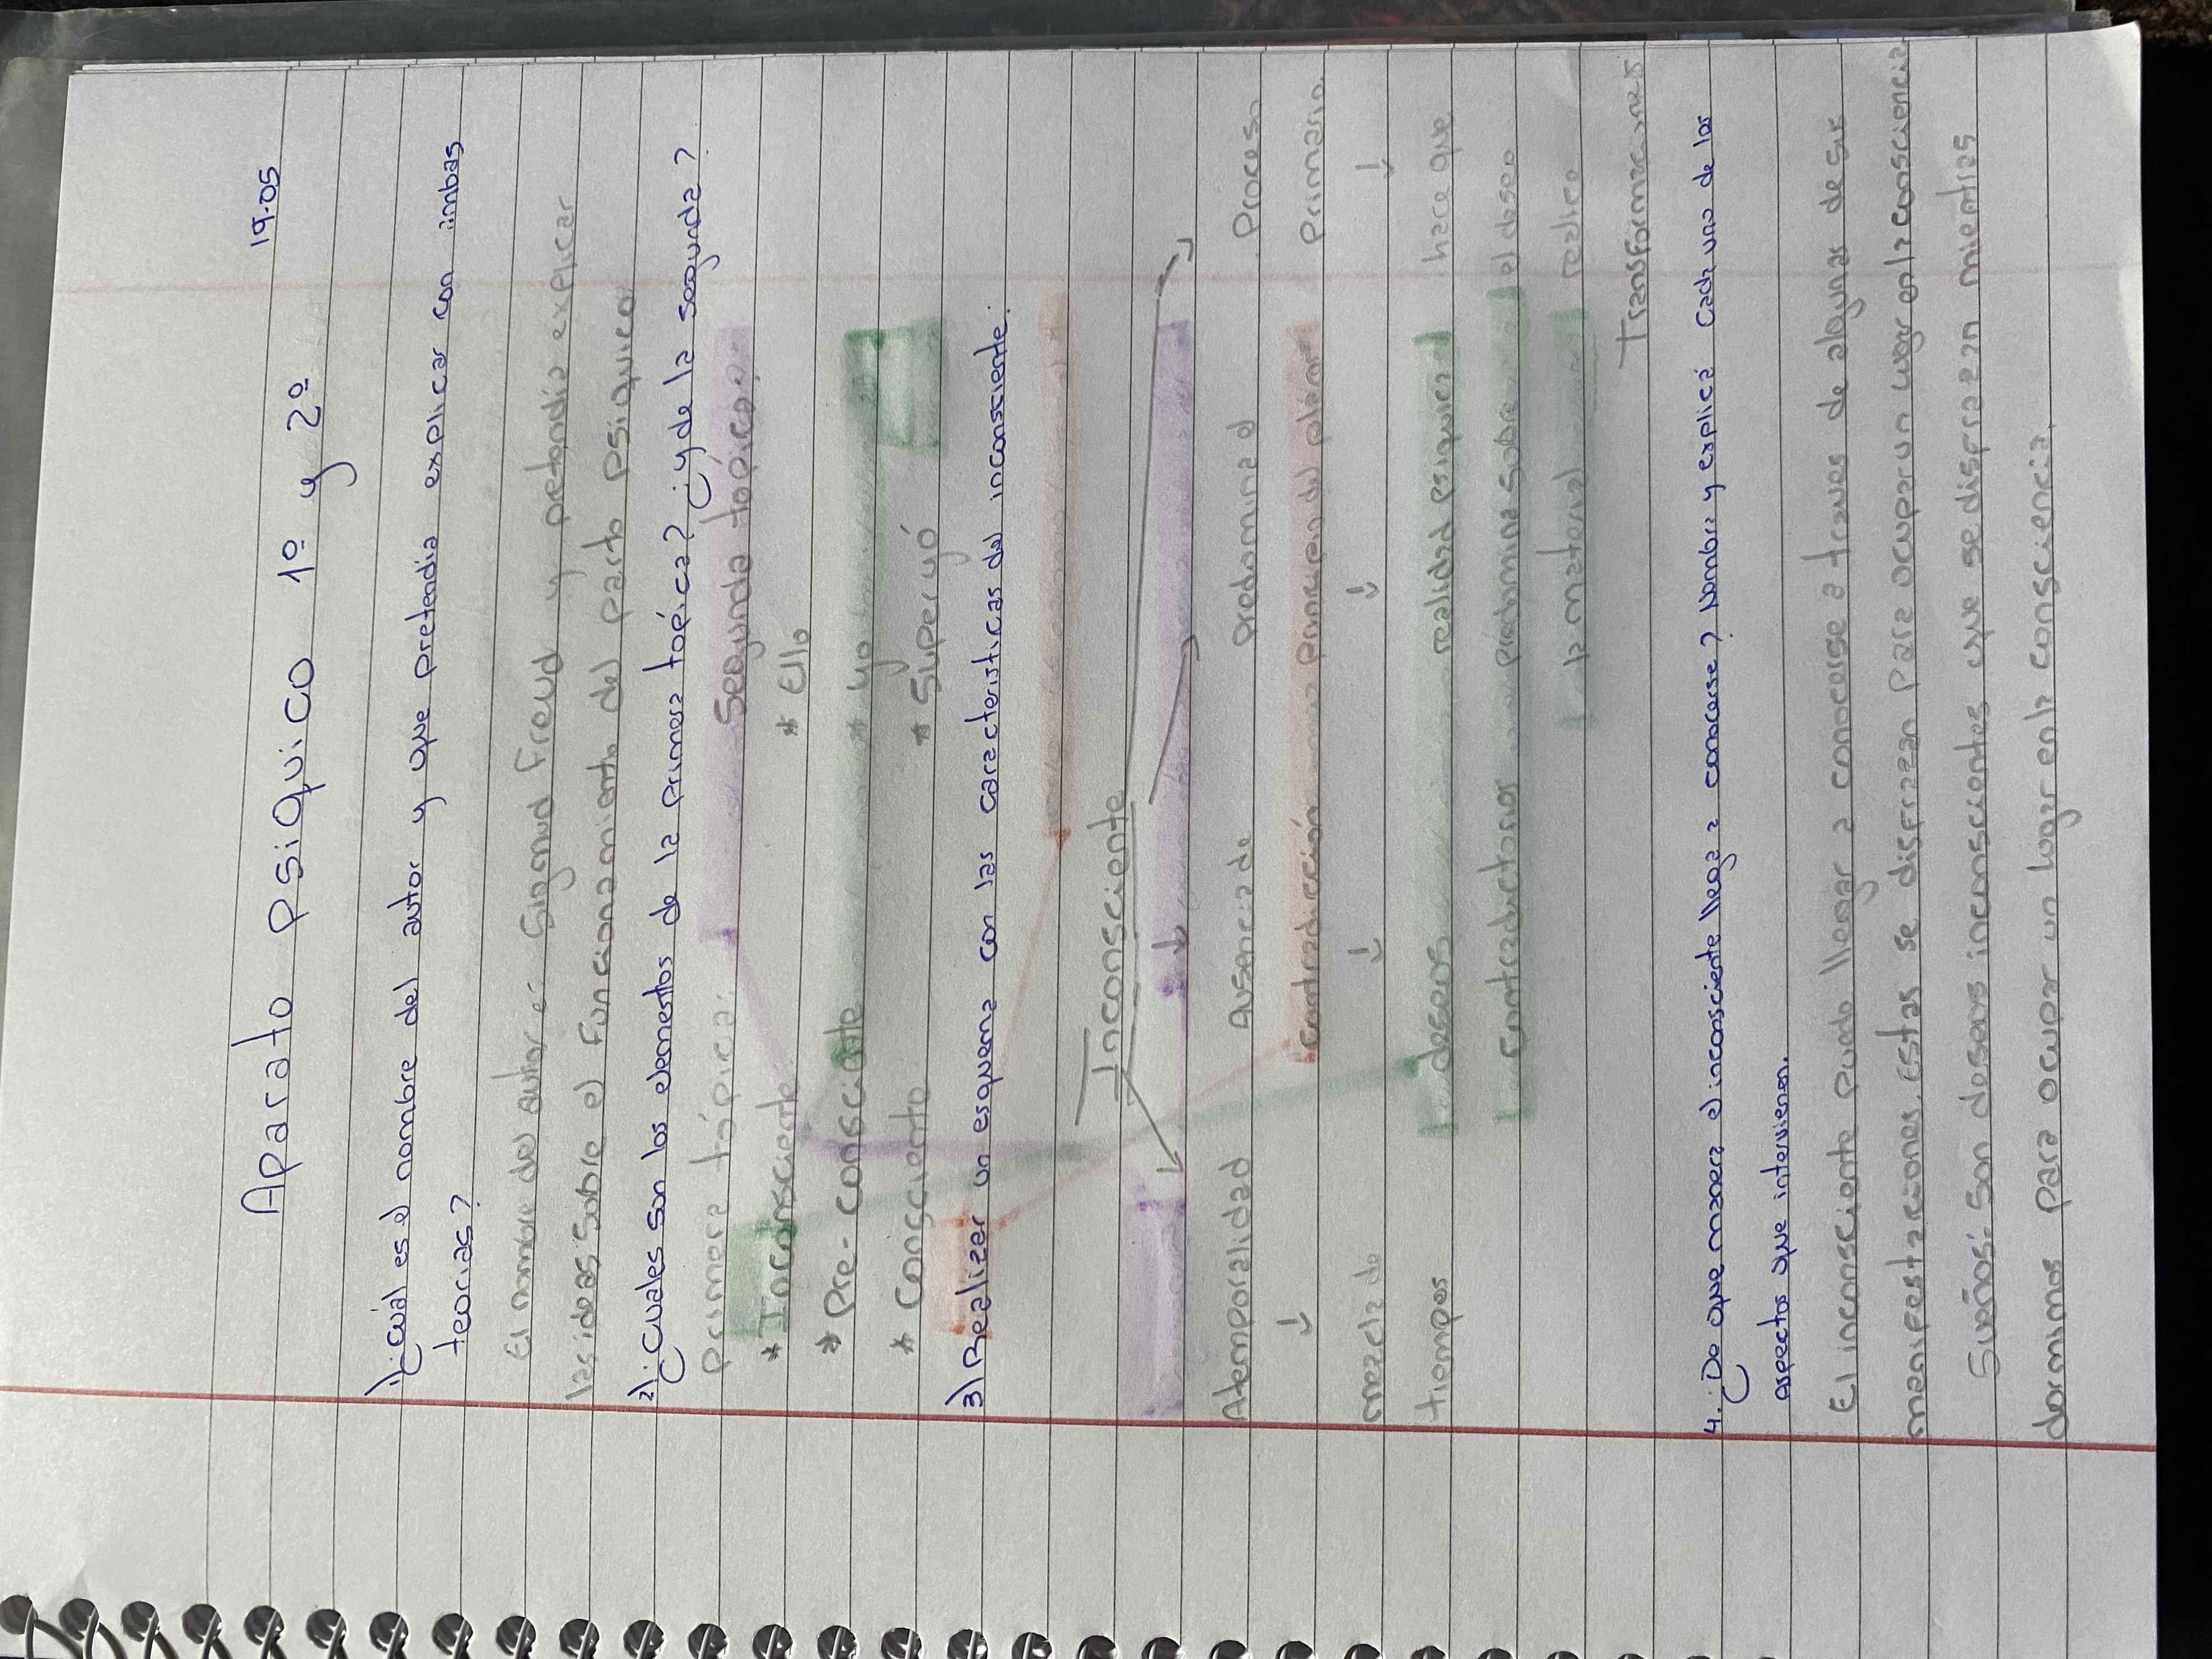 19.05
Aparato psiQuico 1º y 2º
1)¿cuál es el nombre del autor y que pretendia explicar con imbas
teorias?
El nombre del autor es Sigmund Freud y pretendia explicar
las ideas sobre el Funcionamiento del pacto psiquico
2)¿Cuales son los elementos de la primera topica? ¿y de la segunda?
primera tópica: Segunda tópica:
* Inconsciente * Ello
* Pre-consciente * yo
* Consciente * Super yó
3) Realizar un esquema con las caracteristicas del inconsciente:
Inconsciente
Atemporalidad Ausencia de predomina el Proceso
↓ contradicción principio del placer Primario
mezcla de ↓ ↓ ↓
tiempos deseos realidad psiquica hace que
contradictorios predomina sobre el deseo
la material realice
Transformaciones
4.¿De que manera el inconsciente llega a conocerse? Nombre y explicá cada uno de los
aspectos que intervienen.
El inconsciente puede llegar a conocerse a traves de algunas de sus
manifestaciones. Estas se disfrazan para ocupar un lugar en la consciencia
Sueños: Son deseos inconscientes que se disfrazan mientras
dormimos para ocupar un lugar en la consciencia.